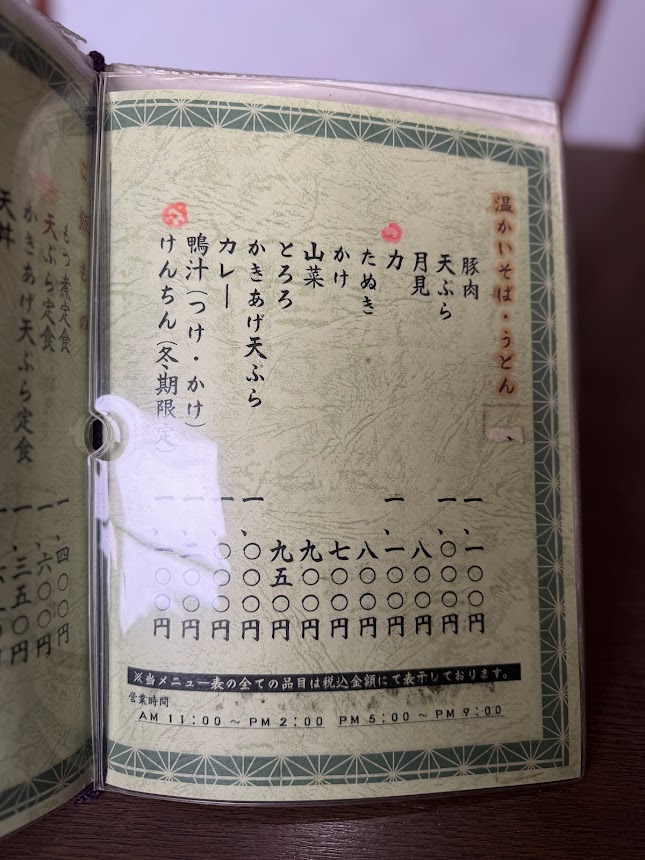 温かいそば・うどん
豚肉 一、一〇〇円
天ぷら 一、〇〇〇円
月見 八〇〇円
力 一、一〇〇円
たぬき 八〇〇円
かけ 七〇〇円
山菜 九〇〇円
とろろ 九五〇円
かきあげ天ぷら 一、〇〇〇円
カレー 一、〇〇〇円
鴨汁(つけ・かけ) 一、二〇〇円
けんちん(冬期限定) 一、一〇〇円
※当メニュー表の全ての品目は税込金額にて表示しております。
営業時間
AM 11:00 ~ PM 2:00 PM 5:00 ~ PM 9:00
ご飯もの
もつ煮定食 一、四〇〇円
天ぷら定食 一、六〇〇円
かきあげ天ぷら定食 一、三五〇円
天丼